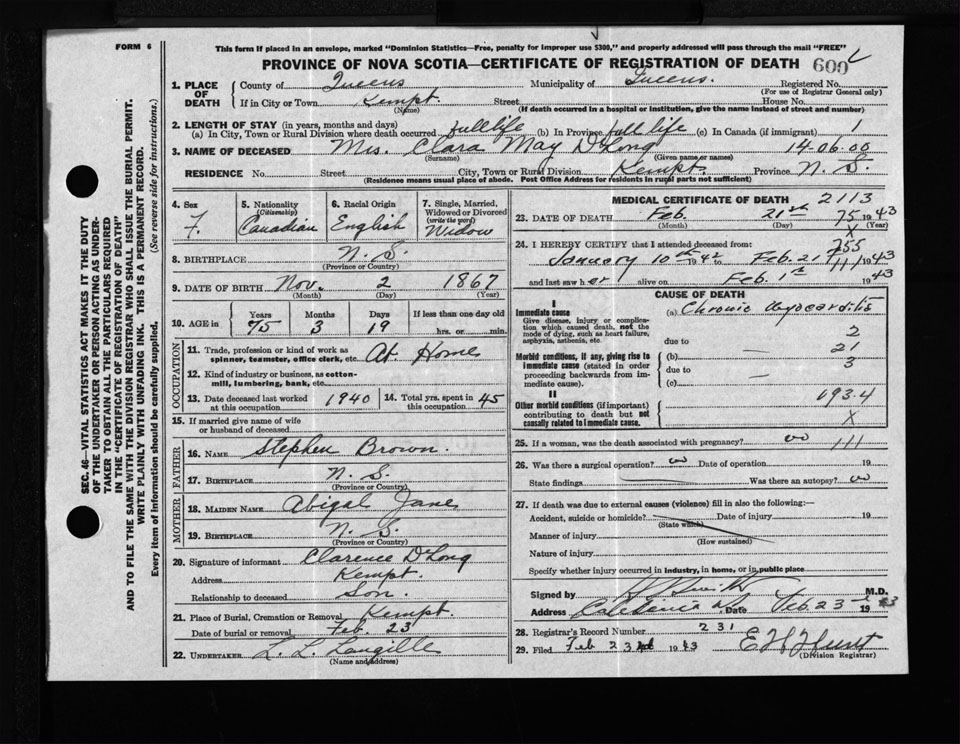 FORM 6
This form if placed in an envelope, marked "Dominion Statistics—Free, penalty for improper use $300," and properly addressed will pass through the mail "FREE"
PROVINCE OF NOVA SCOTIA—CERTIFICATE OF REGISTRATION OF DEATH 600
SEC. 46—VITAL STATISTICS ACT MAKES IT THE DUTY
OF THE UNDERTAKER OR PERSON ACTING AS UNDER-
TAKER TO OBTAIN ALL THE PARTICULARS REQUIRED
IN THE "CERTIFICATE OF REGISTRATION OF DEATH"
AND TO FILE THE SAME WITH THE DIVISION REGISTRAR WHO SHALL ISSUE THE BURIAL PERMIT.
WRITE PLAINLY WITH UNFADING INK. THIS IS A PERMANENT RECORD.
Every item of Information should be carefully supplied. (See reverse side for instructions.)
1. PLACE OF DEATH
County of Queens Municipality of Queens. Registered No.
(For use of Registrar General only)
If in City or Town Kempt. Street House No.
(Name) (If death occurred in a hospital or institution, give the name instead of street and number)
2. LENGTH OF STAY (in years, months and days)
(a) In City, Town or Rural Division where death occurred full life (b) In Province full life (c) In Canada (if immigrant) 1
3. NAME OF DECEASED Mrs. Clara May D'Long 14.06.00
(Surname) (Given name or names)
RESIDENCE No. Street City, Town or Rural Division Kempt. Province N. S.
(Residence means usual place of abode. Post Office Address for residents in rural parts not sufficient)
4. Sex
F.
5. Nationality
(Citizenship)
Canadian
6. Racial Origin
English
7. Single, Married,
Widowed or Divorced
(write the word)
Widow
8. BIRTHPLACE N. S.
(Province or Country)
9. DATE OF BIRTH Nov. 2 1867
(Month) (Day) (Year)
10. AGE in
Years Months Days If less than one day old
75 3 19 hrs. or min.
OCCUPATION
11. Trade, profession or kind of work as
spinner, teamster, office clerk, etc. At Home
12. Kind of industry or business, as cotton-
mill, lumbering, bank, etc.
13. Date deceased last worked
at this occupation 1940
14. Total yrs. spent in
this occupation 45
15. If married give name of wife
or husband of deceased
FATHER
16. NAME Stephen Brown.
17. BIRTHPLACE N. S.
(Province or Country)
MOTHER
18. MAIDEN NAME Abigal Jane
19. BIRTHPLACE N. S.
(Province or Country)
20. Signature of informant Clarence D'Long
Address Kempt.
Relationship to deceased Son.
21. Place of Burial, Cremation or Removal Kempt.
Date of burial or removal Feb. 23
22. UNDERTAKER L. L. Langille
(Name and Address)
MEDICAL CERTIFICATE OF DEATH 2113
23. DATE OF DEATH Feb. 21st 75 1943
(Month) (Day) (Year)
X
24. I HEREBY CERTIFY that I attended deceased from: 755
January 10th 1942 to Feb. 21 111 1943
and last saw her alive on Feb. 1st 1943
CAUSE OF DEATH
I
Immediate cause
Give disease, injury or complica-
tion which caused death, not the
mode of dying, such as heart failure,
asphyxia, asthenia, etc.
(a) Chronic Myocarditis
2
due to
Morbid conditions, if any, giving rise to
immediate cause (stated in order
proceeding backwards from im-
mediate cause).
(b) — 21
due to 3
(c) —
II
Other morbid conditions (if important)
contributing to death but not
causally related to immediate cause.
093.4
X
25. If a woman, was the death associated with pregnancy? no 111
26. Was there a surgical operation? no Date of operation 19
State findings Was there an autopsy? no
27. If death was due to external causes (violence) fill in also the following:—
Accident, suicide or homicide? Date of injury 19
(State which)
Manner of injury
(How sustained)
Nature of injury
Specify whether injury occurred in industry, in home, or in public place
Signed by M.D.
Address Caledonia Date Feb. 23 1943
28. Registrar's Record Number 231
29. Filed Feb 23 1943 E H Hunt
(Division Registrar)